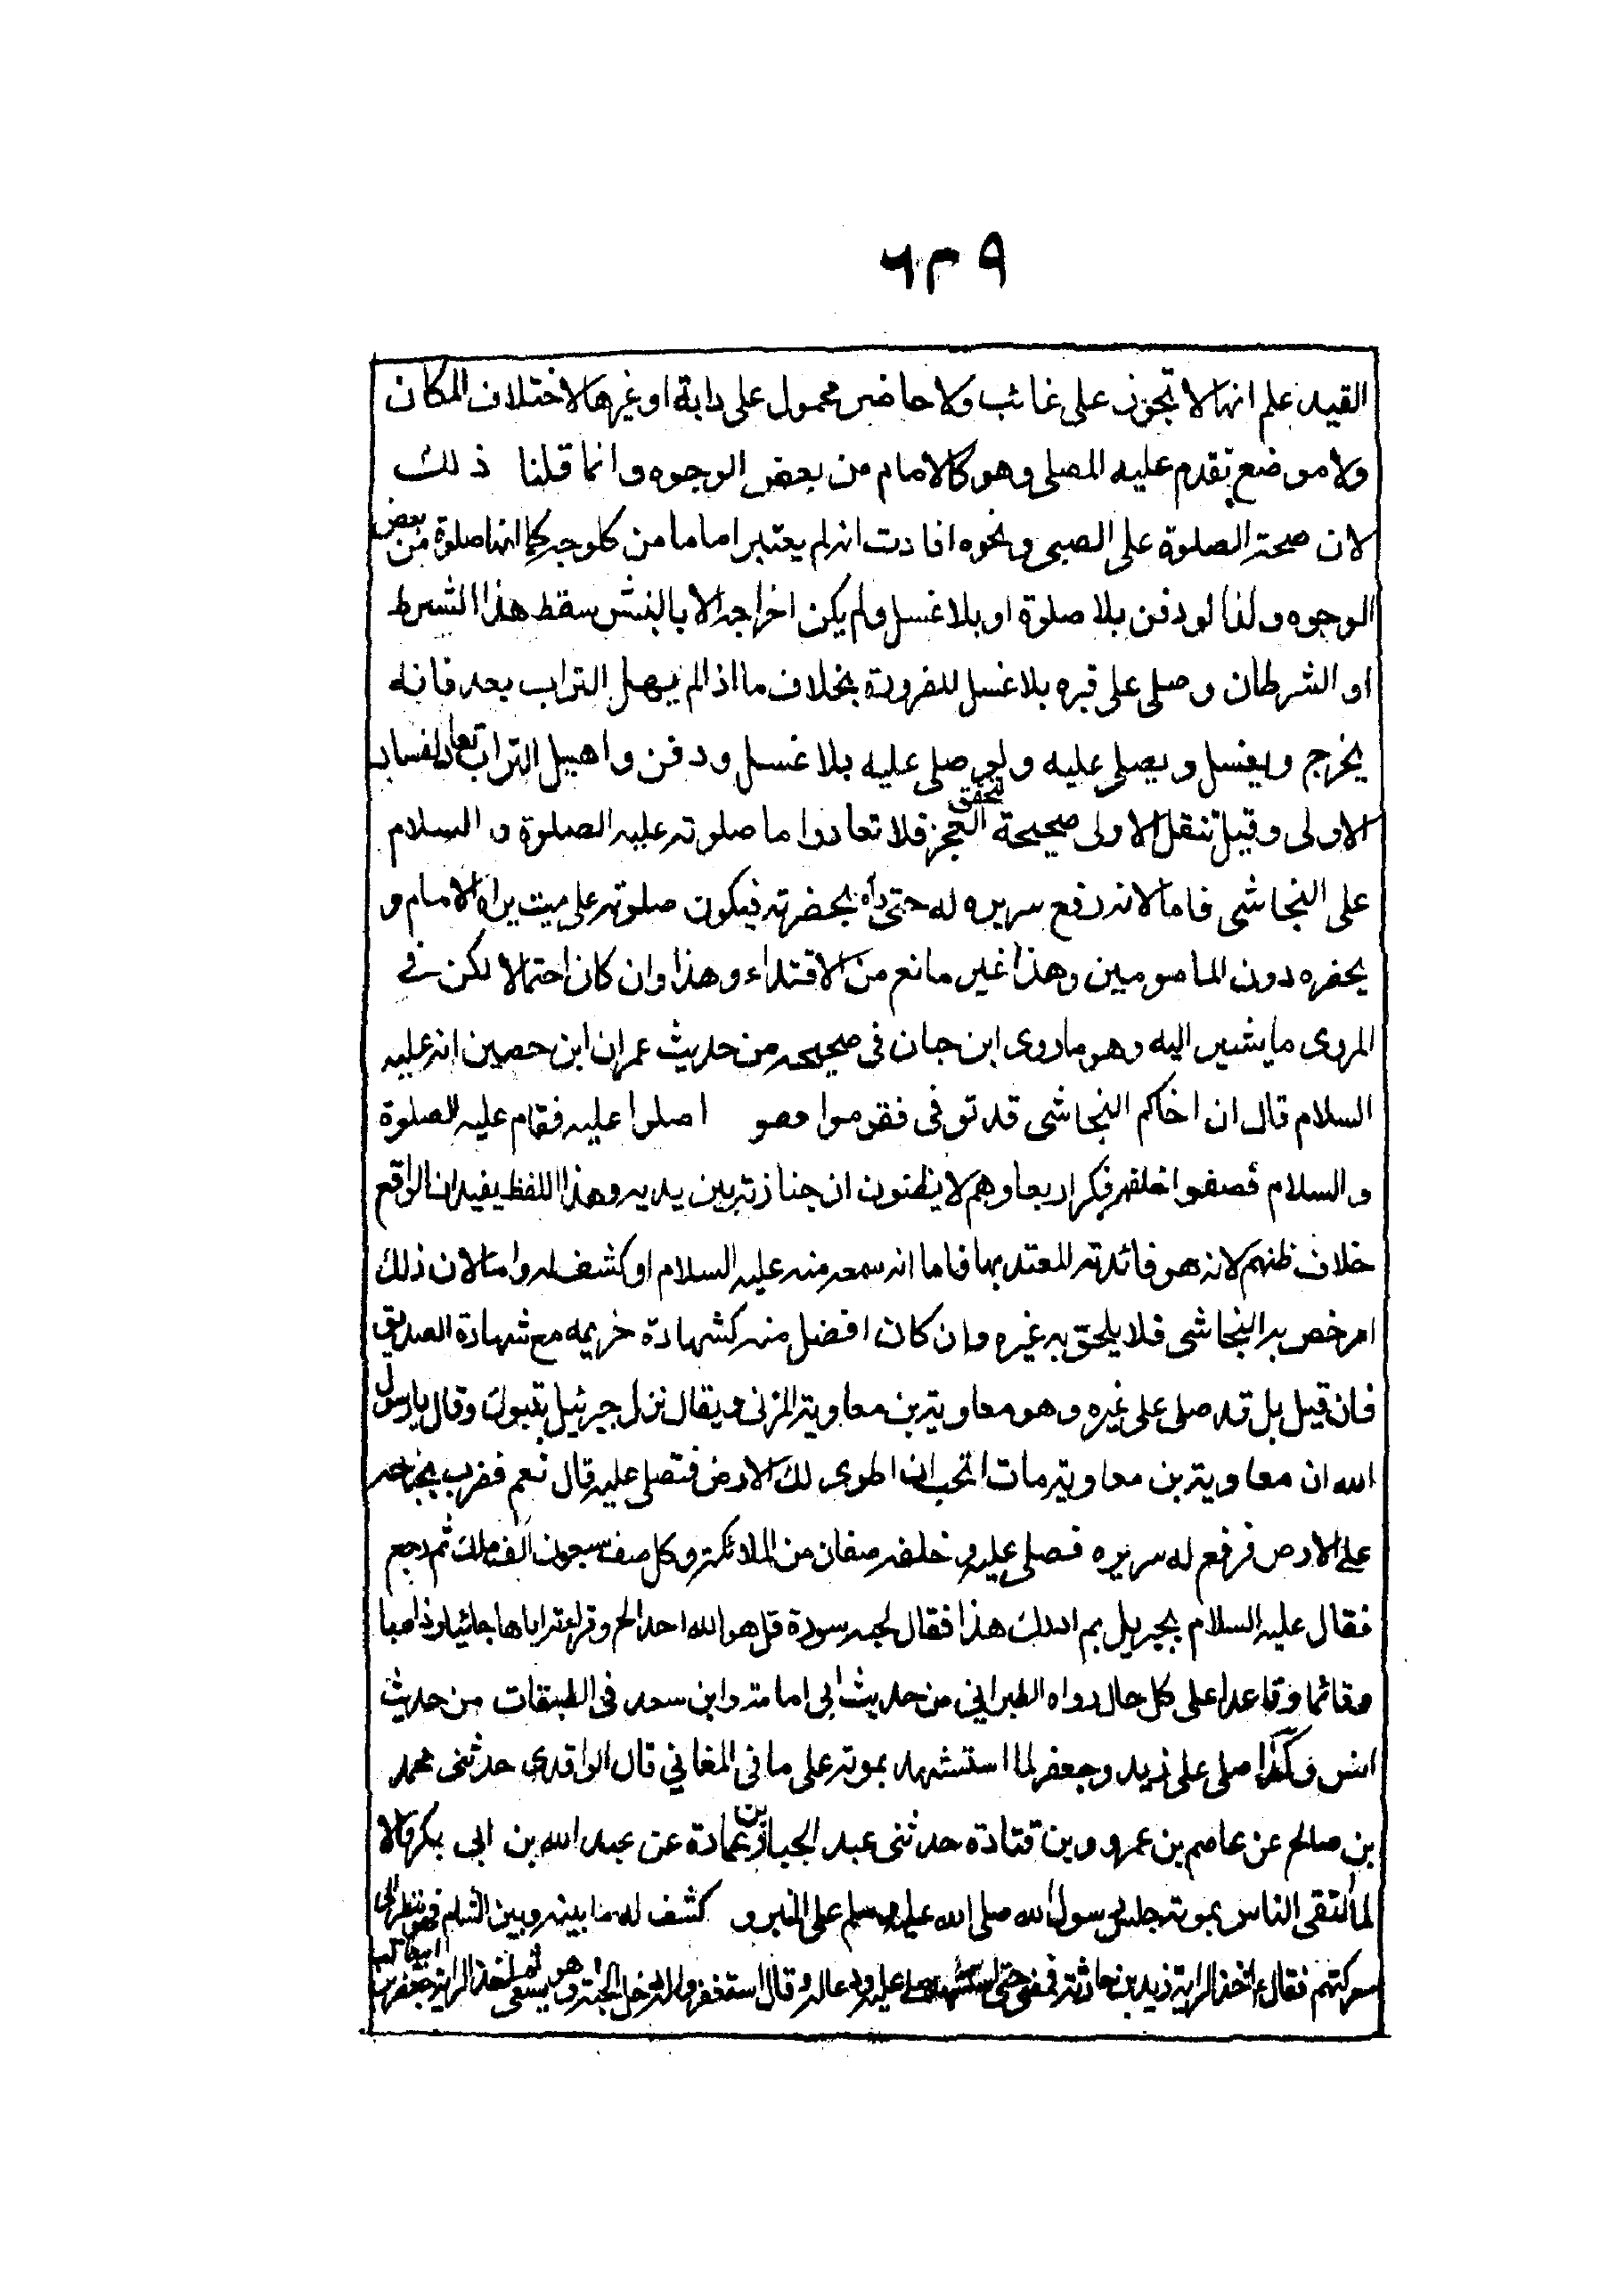 ٦٣٩
القيد علم انها لا تجوز على غائب ولا حاضر محمول على دابة او غيرها لاختلاف المكان
ولا موضع تقدم عليه المصلى وهو كالامام من بعض الوجوه وانما قلنا ذلك
لان صحة الصلوة على الصبى ونحوه افادت انه لم يعتبر اماما من كل وجه كما انها صلوة من بعض
الوجوه ولذا لو دفن بلا صلوة او بلا غسل ولم يكن اخراجه الا بالنبش سقط هذا الشرط
او الشرطان وصلى على قبره بلا غسل للضرورة بخلاف ما اذا لم يهل التراب بعد فانه
يخرج ويغسل ويصلى عليه ولو صلى عليه بلا غسل ودفن واهيل التراب تعاد لفساد
الاولى وقيل تنقل الاولى صحيحة لتحقق العجز فلا تعاد واما صلوته عليه الصلوة والسلام
على النجاشى فاما لانه رفع سريره له حتى رآه بحضرته فيكون صلوته على ميت يراه الامام و
يحضره دون المامومين وهذا غير مانع من الاقتداء وهذا وان كان احتمالا لكن فى
المروى ما يشير اليه وهو ما روى ابن حبان فى صحيحه من حديث عمران ابن حصين انه عليه
السلام قال ان اخاكم النجاشى قد توفى فقوموا صلوا عليه فقام عليه الصلوة
والسلام فصفوا خلفه فكبر اربعا وهم لا يظنون ان جنازته بين يديه وهذا اللفظ يفيد ان الواقع
خلاف ظنهم لانه هو فائدته المعتد بها فاما انه سمعه منه عليه السلام او كشف له واما لان ذلك
امر خص به النجاشى فلا يلحق به غيره وان كان افضل منه كشهادة خزيمه مع شهادة الصديق
فان قيل بل قد صلى على غيره وهو معاوية بن معاوية المزنى ويقال نزل جبرئيل بتبوك وقال يا رسول
الله ان معاوية بن معاوية مات اتحب ان اطوى لك الارض فتصلى عليه قال نعم فضرب بجناحه
على الارض فرفع له سريره فصلى عليه وخلفه صفان من الملائكة وكل صف سبعون الف ملك ثم رجع
فقال عليه السلام بجبريل بم ادرك هذا فقال لحبه سورة قل هو الله احد الخ وقراءته اياها جائيا وذاهبا
وقائما وقاعدا على كل حال رواه الطبرانى من حديث ابى امامة وابن سعد فى الطبقات من حديث
انس وكذا صلى على زيد وجعفر لما استشهد بموته على ما فى المغازي قال الواقدى حدثنى محمد
بن صالح عن عاصم بن عمرو وبن قتادة حدثنى عبد الجبار بن عمادة عن عبد الله بن ابى بكر قالا
لما التقى الناس بموته جلس رسول الله صلى الله عليه وسلم على المنبر و كشف له ما بينه وبين الشام فهو ينظر الى
معركتهم فقال اخذ الراية زيد بن حارثة فمضى حتى استشهد وصلى عليه ودعا له وقال استغفروا له دخل الجنة وهو يسعى ثم اخذ الراية جعفر بن ابيطالب